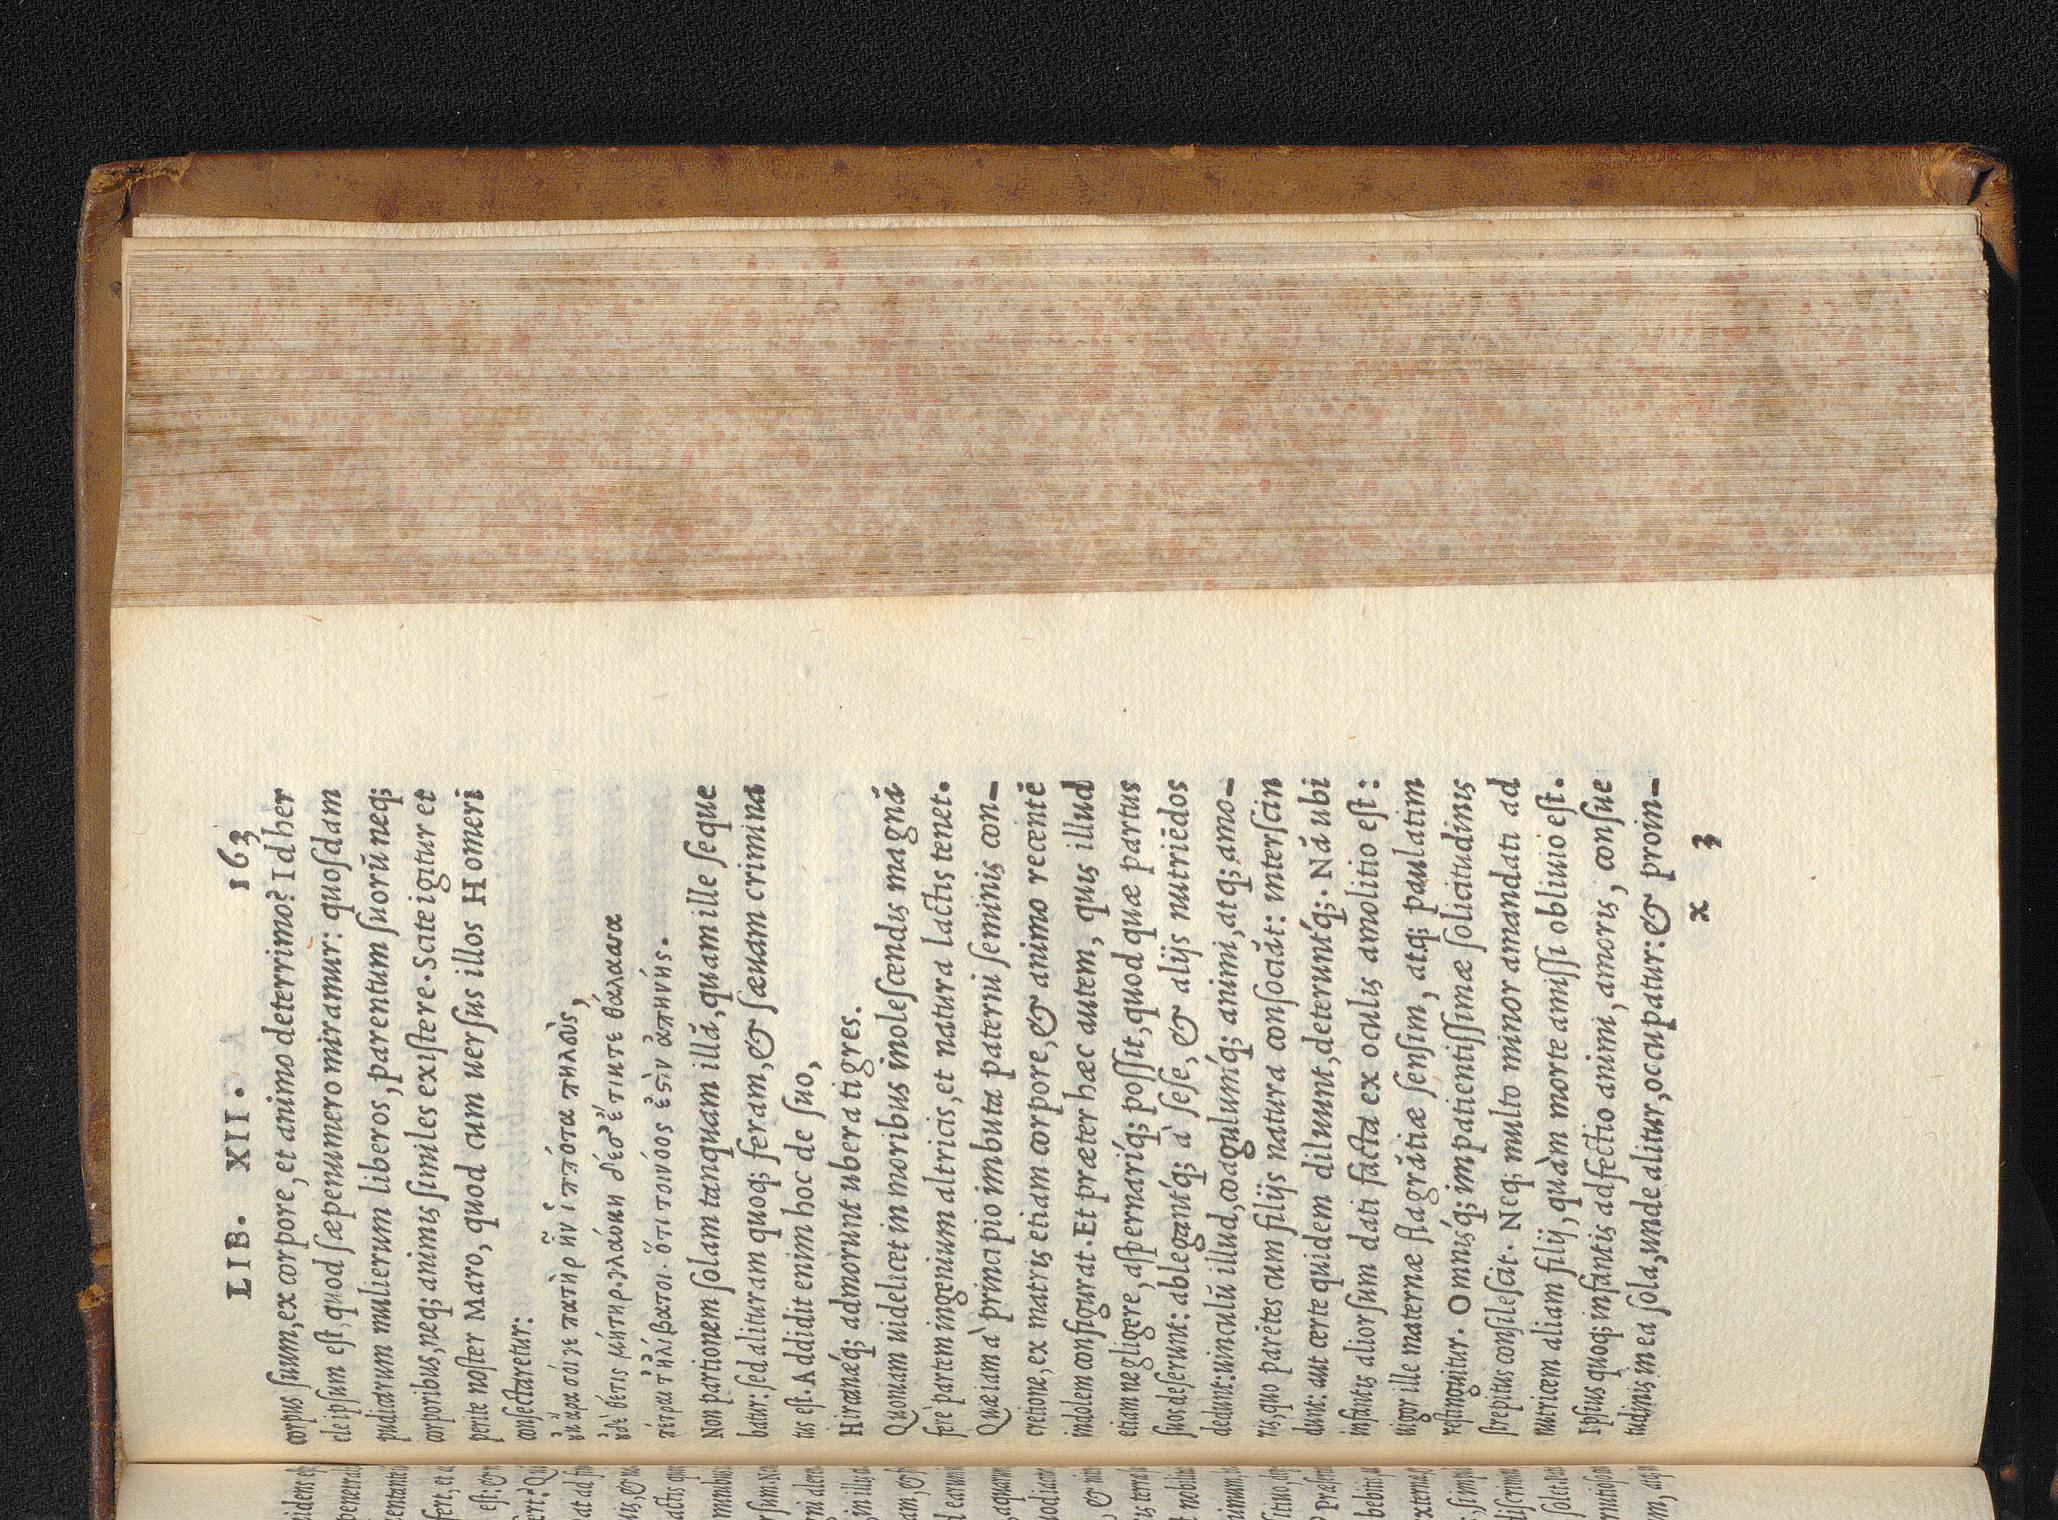 LIB. XII. 163
corpus ſuum, ex corpore, et animo deterrimo? Id her
cle ipſum eſt, quod ſæpenumero miramur: quoſdam
pudicarum mulierum liberos, parentum ſuorū neq;
corporibus, neq; animis ſimiles exiſtere. Scite igitur et
perite noſter Maro, quod cum uerſus illos Homeri
conſectaretur:
οὐκ ἄρα σόι γε πατὴρ ἦν ἱππότα πηλεὺς,
οὐδὲ θέτις μήτηρ. γλαύκη δέ σ᾽ ἔτικτε θάλασσα
πέτραι τ᾽ ἠλίβατοι. ὅτι τοι νόος ἐστὶν ἀπηνής.
Non partionem ſolam tanquam illā, quam ille ſeque
batur: ſed alituram quoq; feram, & ſæuam crimina
tus eſt. Addidit enim hoc de ſuo,
Hircanæq́; admorunt ubera tigres.
Quoniam uidelicet in moribus inoleſcendis magnā
ferè partem ingenium altricis, et natura lactis tenet.
Quæ iam à principio imbuta paterni ſeminis con-
cretione, ex matris etiam corpore, & animo recentē
indolem configurat. Et præter hæc autem, quis illud
etiam negligere, aſpernariq́; poſſit, quod quæ partus
ſuos deſerunt: ablegantq́; à ſeſe, & alijs nutriēdos
dedunt: uinculū illud, coagulumq́; animi, atq; amo-
ris, quo parētes cum filijs natura conſociāt: interſcin
dunt: aut certe quidem diluunt, deteruntq́;. Nā ubi
infantis aliorſum dati facta ex oculis amolitio eſt:
uigor ille maternæ flagrātiæ ſenſim, atq; paulatim
reſtinguitur. Omnisq́; impatientiſſimæ ſolicitudinis
ſtrepitus conſileſcit. Neq; multo minor amandati ad
nutricem aliam filij, quàm morte amiſſi obliuio eſt.
Ipſius quoq; infantis adfectio animi, amoris, conſue
tudinis in ea ſola, unde alitur, occupatur: & proin-
x 3